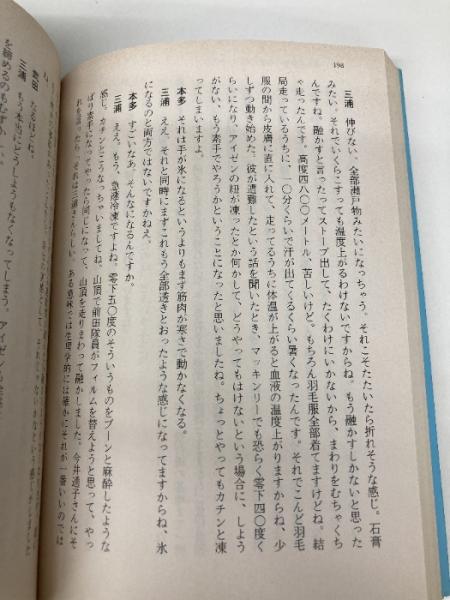 198
三浦　伸びない、全部瀬戸物みたいになっちゃう。それこそたたいたら折れそうな感じ。石膏
みたい、それでいくらこすっても温度上がるわけないですからね。もう融かすしかないと思った
んですね。融かすと言ったってストーブ出して、たくわけにいかないから、まわりをむちゃくち
ゃ走ったんです。高度四八〇〇メートル、苦しいけど。もちろん羽毛服全部着てますけどね。結
局走っているうちに、一〇分くらいで汗が出てくるくらい暑くなったんです。それでこんど羽毛
服の間から皮膚に直に入れて、走ってるうちに体温が上がると血液の温度上がりますからね、少
しずつ動き始めた。彼が遭難したという話を聞いたとき、マッキンリーでも恐らく零下四〇度く
らいになり、アイゼンの紐が凍ったとか何かして、どうやってもはけないという場合に、どうし
がない、もう素手でやろうかということになったと思いましたね。ちょっとやってもカチンと凍
ってしまいますよ。
本多　それは手が氷になるというよりもまず筋肉が寒さで動かなくなる。
三浦　ええ、それと同時にまずこれもう全部透きとおったような感じになってますからね、氷
になるのと両方ではないですかねえ。
本多　すごいなあ、そんなになるんですか。
三浦　ええ、もう、急速冷凍ですよね。零下五〇度のそういうものをブーンと麻酔したような
感じ。カチンになっちゃって、山頂で前田隊員がフィルムを替えようと思って、やっ
ぱり素手になってやったら同じになって、山頂を走りまわって融かしました。今井通子さんにそ
ある意味では生理学的には確かにそれが一番いいのでは
武田　なるほどね。
三浦　もう本当にどうしようもなくなってしまう。アイゼン
を締めるのも